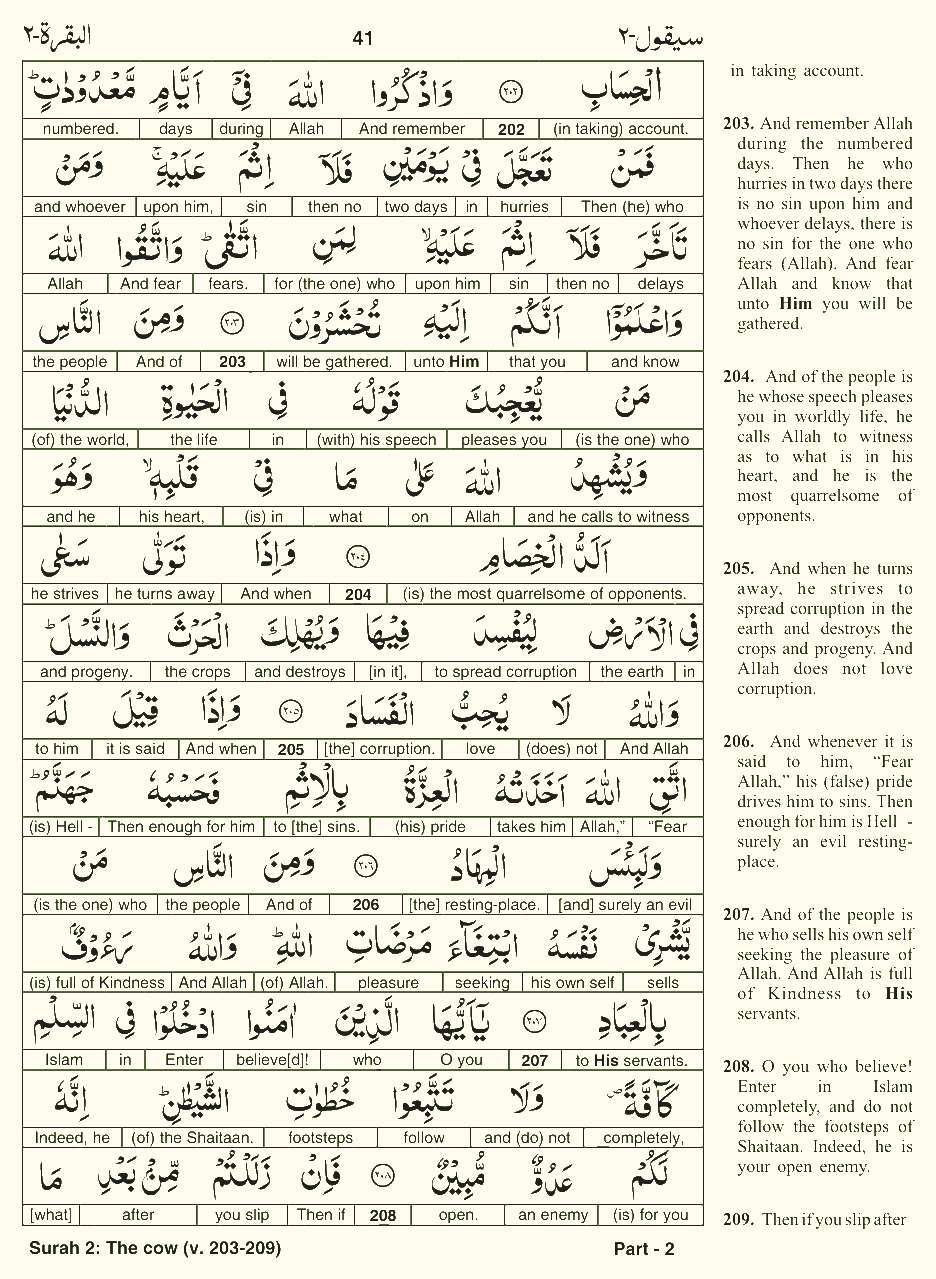 البقرة-٢ 41 سيقول-٢
الْحِسَابِ ٢٠٢ وَاذْكُرُوا اللّٰهَ فِيْٓ اَيَّامٍ مَّعْدُوْدٰتٍ ؕ
(in taking) account. 202 And remember Allah during days numbered.
فَمَنْ تَعَجَّلَ فِيْ يَوْمَيْنِ فَلَآ اِثْمَ عَلَيْهِ ۚ وَمَنْ
Then (he) who hurries in two days then no sin upon him, and whoever
تَاَخَّرَ فَلَآ اِثْمَ عَلَيْهِ ۙ لِمَنِ اتَّقٰى ؕ وَاتَّقُوا اللّٰهَ
delays then no sin upon him for (the one) who fears. And fear Allah
وَاعْلَمُوْٓا اَنَّكُمْ اِلَيْهِ تُحْشَرُوْنَ ٢٠٣ وَمِنَ النَّاسِ
and know that you unto Him will be gathered. 203 And of the people
مَنْ يُّعْجِبُكَ قَوْلُهٗ فِي الْحَيٰوةِ الدُّنْيَا
(is the one) who pleases you (with) his speech in the life (of) the world,
وَيُشْهِدُ اللّٰهَ عَلٰى مَا فِيْ قَلْبِهٖ ۙ وَهُوَ
and he calls to witness Allah on what (is) in his heart, and he
اَلَدُّ الْخِصَامِ ٢٠٤ وَاِذَا تَوَلّٰى سَعٰى
(is) the most quarrelsome of opponents. 204 And when he turns away he strives
فِي الْاَرْضِ لِيُفْسِدَ فِيْهَا وَيُهْلِكَ الْحَرْثَ وَالنَّسْلَ ؕ
in the earth to spread corruption [in it], and destroys the crops and progeny.
وَاللّٰهُ لَا يُحِبُّ الْفَسَادَ ٢٠٥ وَاِذَا قِيْلَ لَهُ
And Allah (does) not love [the] corruption. 205 And when it is said to him
اتَّقِ اللّٰهَ اَخَذَتْهُ الْعِزَّةُ بِالْاِثْمِ فَحَسْبُهٗ جَهَنَّمُ ؕ
“Fear Allah,” takes him (his) pride to [the] sins. Then enough for him (is) Hell -
وَلَبِئْسَ الْمِهَادُ ٢٠٦ وَمِنَ النَّاسِ مَنْ
[and] surely an evil [the] resting-place. 206 And of the people (is the one) who
يَّشْرِيْ نَفْسَهُ ابْتِغَآءَ مَرْضَاتِ اللّٰهِ ؕ وَاللّٰهُ رَءُوْفٌۢ
sells his own self seeking pleasure (of) Allah. And Allah (is) full of Kindness
بِالْعِبَادِ ٢٠٧ يٰٓاَيُّهَا الَّذِيْنَ اٰمَنُوا ادْخُلُوْا فِي السِّلْمِ
to His servants. 207 O you who believe[d]! Enter in Islam
كَآفَّةً ۪ وَلَا تَتَّبِعُوْا خُطُوٰتِ الشَّيْطٰنِ ؕ اِنَّهٗ
completely, and (do) not follow footsteps (of) the Shaitaan. Indeed, he
لَكُمْ عَدُوٌّ مُّبِيْنٌ ٢٠٨ فَاِنْ زَلَلْتُمْ مِّنْۢ بَعْدِ مَا
(is) for you an enemy open. 208 Then if you slip after [what]
in taking account.
203. And remember Allah
during the numbered
days. Then he who
hurries in two days there
is no sin upon him and
whoever delays, there is
no sin for the one who
fears (Allah). And fear
Allah and know that
unto Him you will be
gathered.
204. And of the people is
he whose speech pleases
you in worldly life, he
calls Allah to witness
as to what is in his
heart, and he is the
most quarrelsome of
opponents.
205. And when he turns
away, he strives to
spread corruption in the
earth and destroys the
crops and progeny. And
Allah does not love
corruption.
206. And whenever it is
said to him, “Fear
Allah,” his (false) pride
drives him to sins. Then
enough for him is Hell -
surely an evil resting-
place.
207. And of the people is
he who sells his own self
seeking the pleasure of
Allah. And Allah is full
of Kindness to His
servants.
208. O you who believe!
Enter in Islam
completely, and do not
follow the footsteps of
Shaitaan. Indeed, he is
your open enemy.
209. Then if you slip after
Surah 2: The cow (v. 203-209) Part - 2